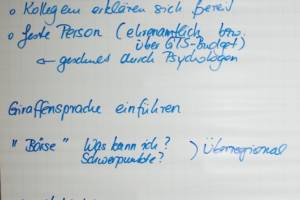 o Kollegen erklären sich bereit
o feste Person (ehrenamtlich bzw.
über GTS-Budget)
← geschult durch Psychologen
Giraffensprache einführen
"Börse" Was kann ich? ) überregional
Schwerpunkte?